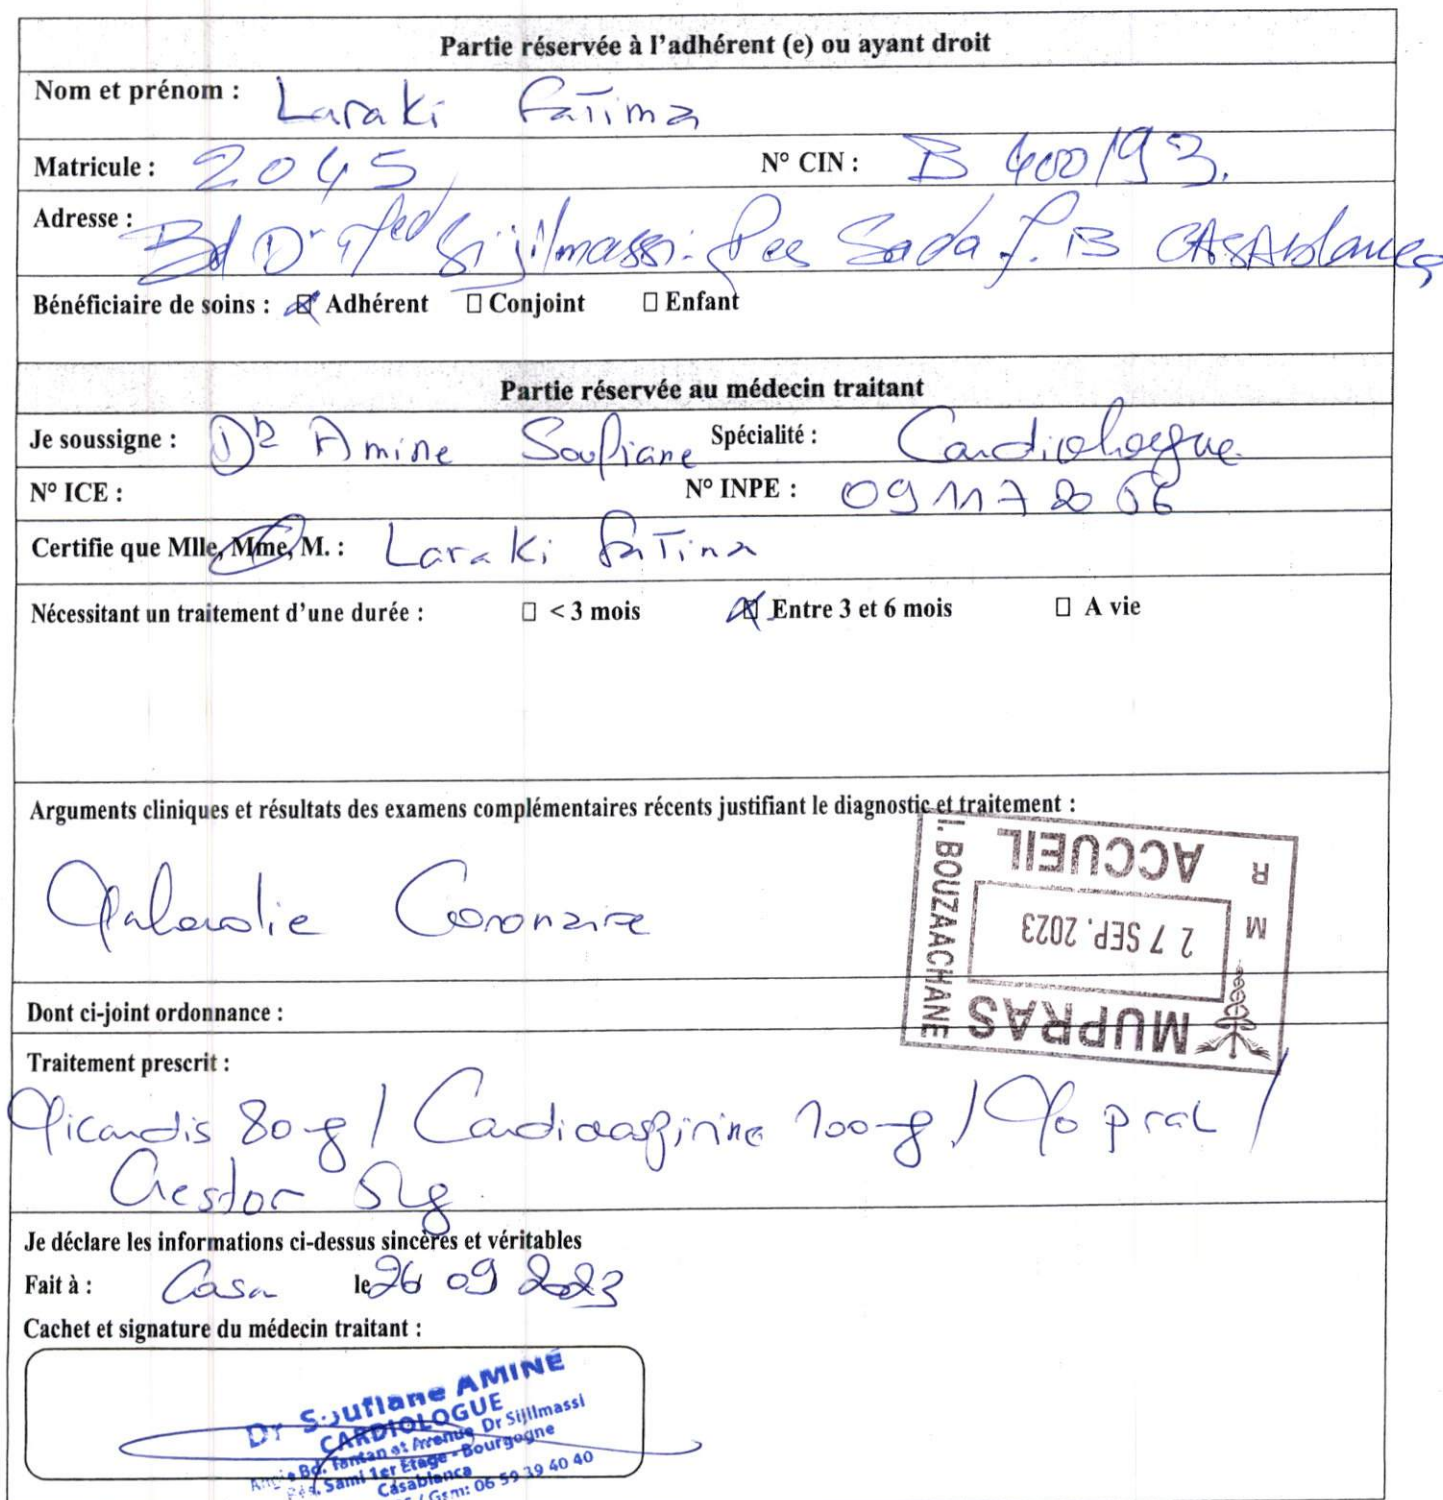 Partie réservée à l'adhérent (e) ou ayant droit
Nom et prénom : Laraki Fatima
Matricule : 2045 N° CIN : B 400193.
Adresse : Bd Dr Sijilmassi. Sada CASAblanca
Bénéficiaire de soins : ☒ Adhérent □ Conjoint □ Enfant
Partie réservée au médecin traitant
Je soussigne : Dr Amine Soufiane Spécialité : Cardiologue
N° ICE : N° INPE : 091172066
Certifie que Mlle, Mme, M. : Laraki Fatima
Nécessitant un traitement d'une durée : □ < 3 mois ☒ Entre 3 et 6 mois □ A vie
Arguments cliniques et résultats des examens complémentaires récents justifiant le diagnostic et traitement :
Maladie Coronaire
MUPRAS
27 SEP. 2023
ACCUEIL
I. BOUZAACHANE
R M
Dont ci-joint ordonnance :
Traitement prescrit :
Micardis 80 mg / Cardioaspirine 100 mg / Mopral /
Crestor 5mg
Je déclare les informations ci-dessus sincères et véritables
Fait à : Casa le 26 09 2023
Cachet et signature du médecin traitant :
Dr Soufiane AMINE
CARDIOLOGUE
Angle Bd. Tantan et Avenue Dr Sijilmassi
Rés. Sami 1er Etage - Bourgogne
Casablanca
/ Gsm: 06 59 39 40 40